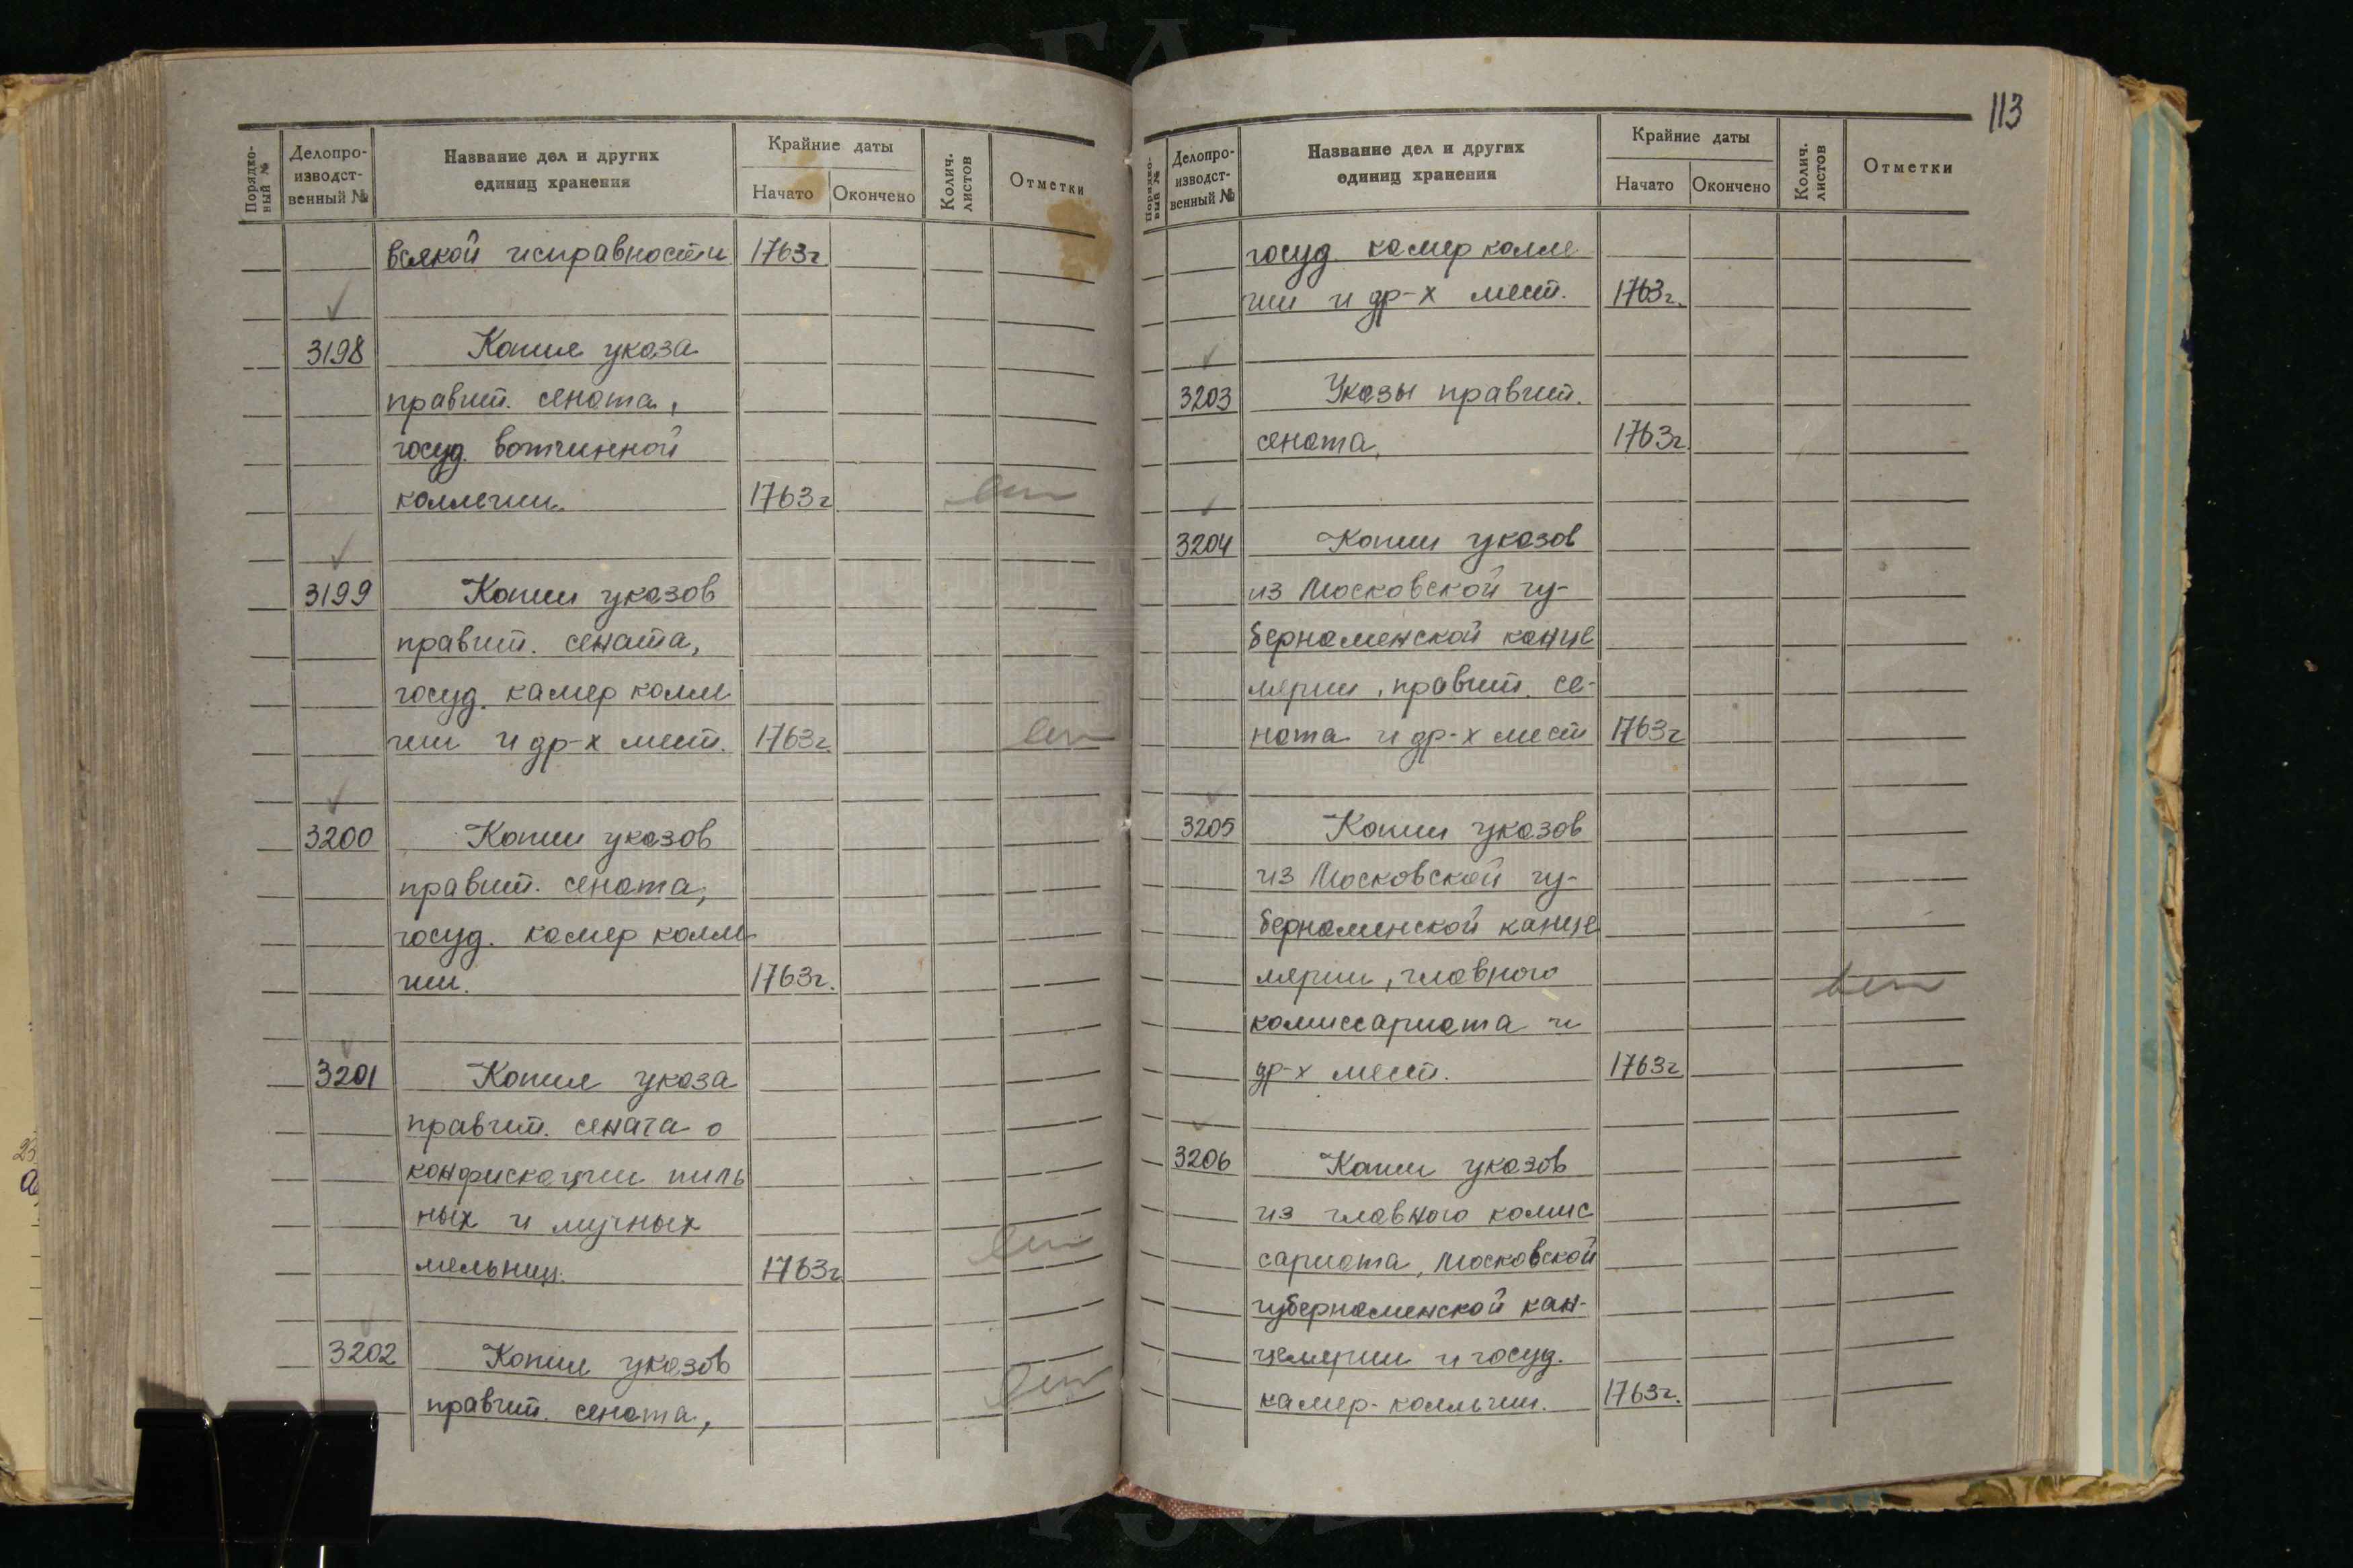 Порядко-
вый №
Делопро-
изводст-
венный №
Название дел и других
единиц хранения
Крайние даты
Начато
Окончено
Колич.
листов
Отметки
всякой исправности 1763г
3198 Копия указа
правит. сената,
госуд. вотчинной
коллегии. 1763г
3199 Копии указов
правит. сената,
госуд. камер колле
гии и др-х мест. 1763г
3200 Копии указов
правит. сената,
госуд. камер колле
гии. 1763г.
3201 Копия указа
правит. сената о
конфискации пиль
ных и мучных
мельниц. 1763г
3202 Копии указов
правит. сената,
113
Порядко-
вый №
Делопро-
изводст-
венный №
Название дел и других
единиц хранения
Крайние даты
Начато
Окончено
Колич.
листов
Отметки
госуд. камер колле
гии и др-х мест. 1763г.
3203 Указы правит.
сената. 1763г
3204 Копии указов
из Московской гу-
бернаменской канце
лярии, правит. се-
ната и др-х мест 1763г
3205 Копии указов
из Московской гу-
бернаменской канце
лярии, главного
комиссариата и
др-х мест. 1763г
3206 Копии указов
из главного комис
сариата, Московской
губернаменской кан-
целярии и госуд.
камер-коллегии. 1763г.